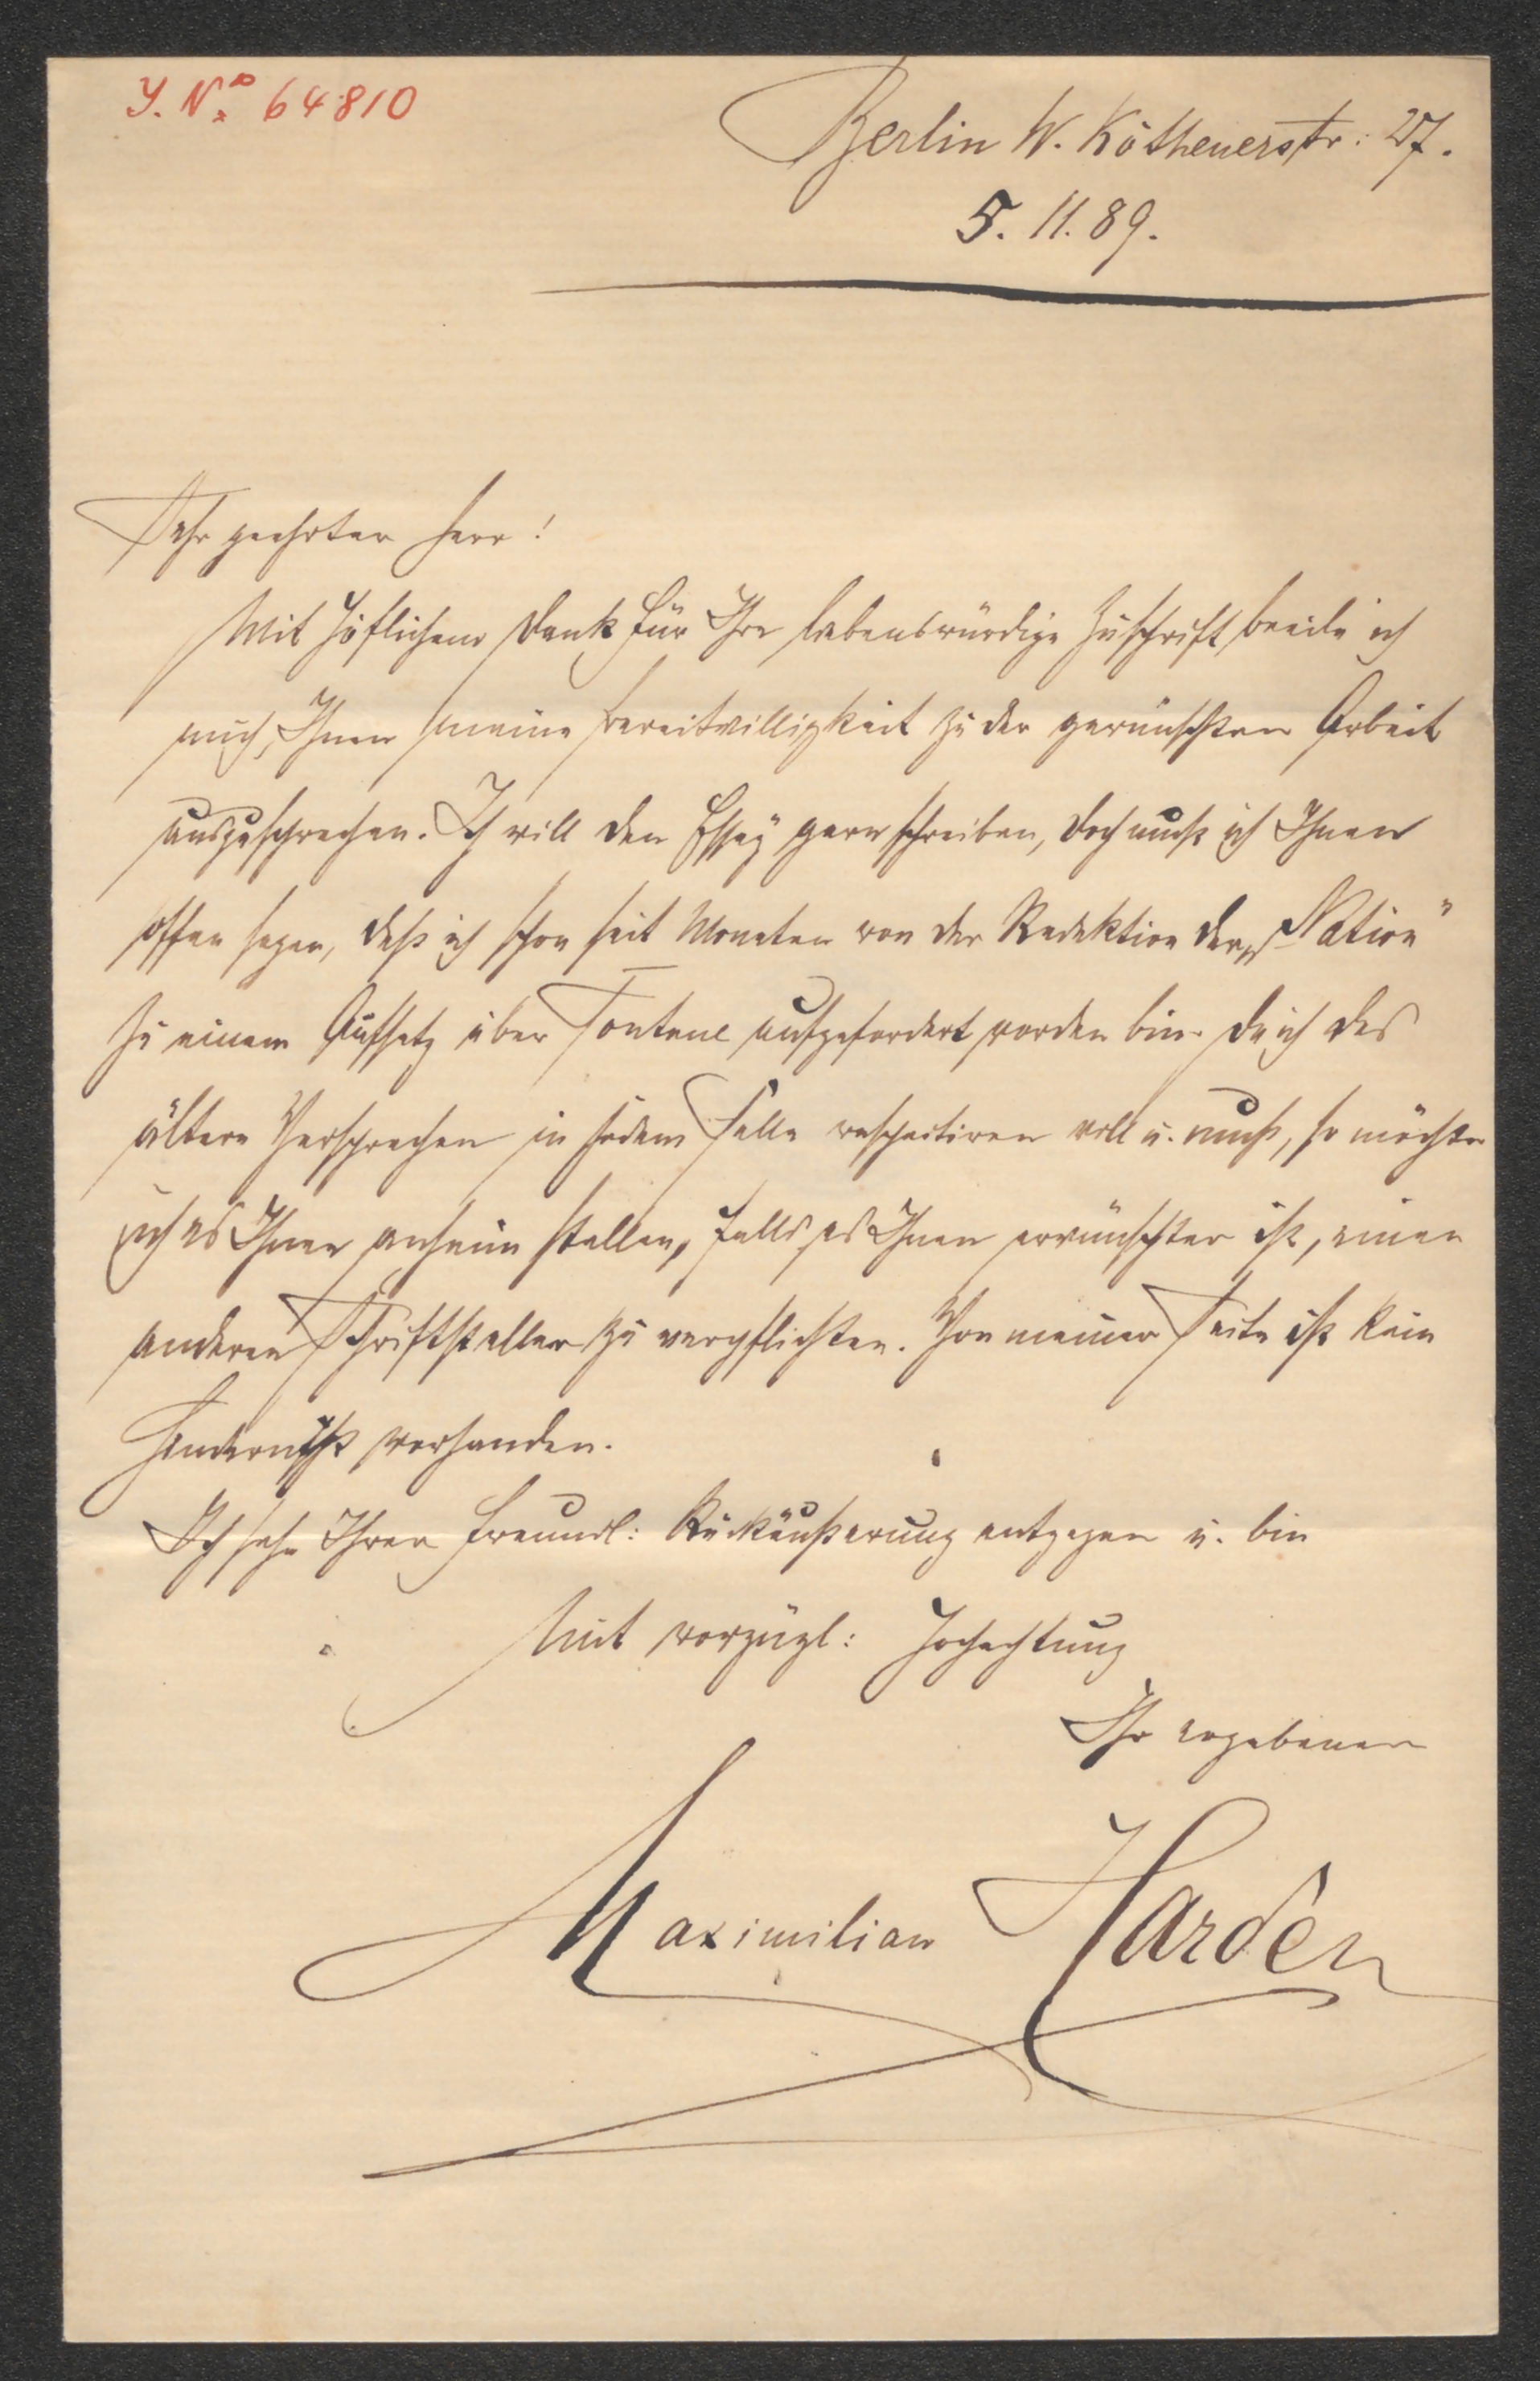 J. No 64810
Berlin W. Köthenerstr: 27.
5. 11. 89.
Sehr geehrter Herr!
Mit höflichem Dank für Ihre liebenswürdige Zuschrift beeile ich
mich, Ihnen meine Bereitwilligkeit zu der gewünschten Arbeit
auszusprechen. Ich will den Essay gern schreiben, doch muß ich Ihnen
offen sagen, daß ich schon seit Monaten von der Redaktion der „Nation"
zu einem Aufsatz über Fontane aufgefordert worden bin. Da ich das
ältere Versprechen in jedem Falle respectiren will u. muß, so möchte
ich es Ihnen anheim stellen, falls es Ihnen erwünschter ist, einen
anderen Schriftsteller zu verpflichten. Von meiner Seite ist kein
Hinderniß vorhanden.
Ich sehe Ihrer freundl: Rückäußerung entgegen u. bin
Mit vorzügl: Hochachtung
Ihr ergebener
Maximilian Harden